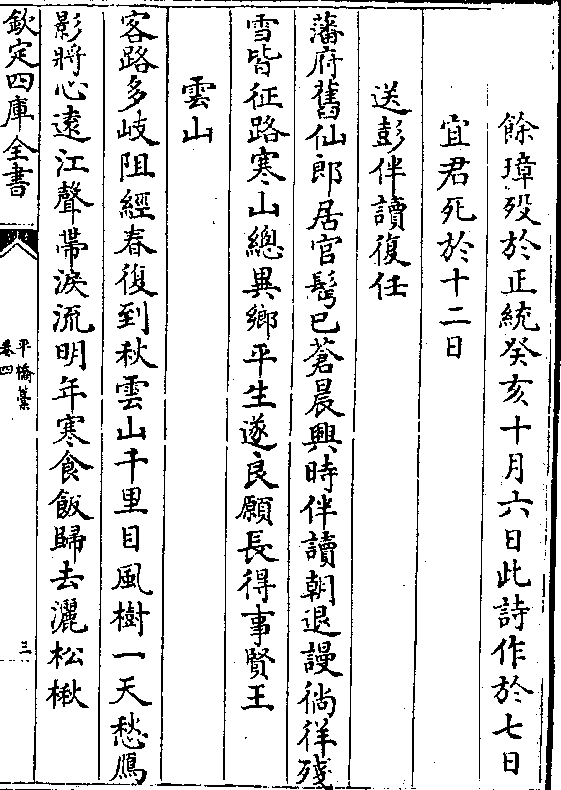 餘璋歿於正統癸亥十月六日此詩作於七日
宜君死於十二日
送彭伴讀復任
藩府舊仙郎居官鬂已蒼晨興時伴讀朝退謾徜徉殘
雪皆征路寒山總異鄉平生遂良願長得事賢王
雲山
客路多岐阻經春復到秋雲山千里目風樹一天愁鴈
影將心逺江聲帶淚流明年寒食飯歸去灑松楸
欽定四庫全書
平橋藁
卷四
三